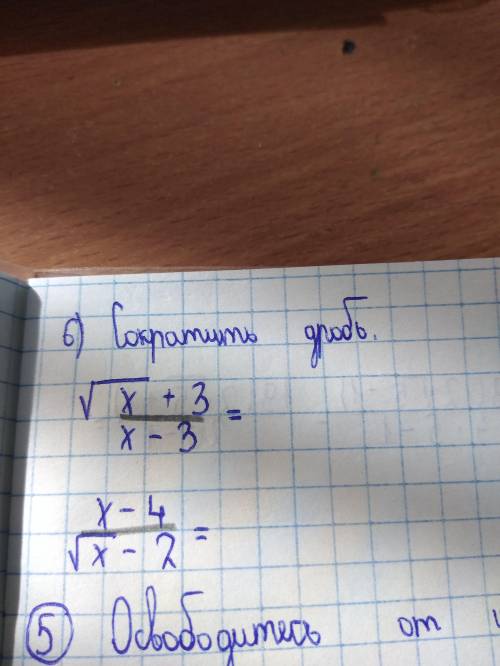 б) Сократить дробь.
√x + 3
x - 3 =
x - 4
√x - 2 =
5 Освободитесь от